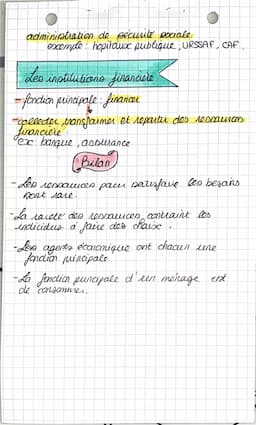 administration de sécurité sociale
exemple: hopitaux publique, URSSAF, CAF.
Les institutions financière
- fonction principale: financer
- collecter, transformer et repartir des ressources
financière
ex: banque, assurance
Bilan
- Les ressources pour satisfaire les besoins
sont rare.
- La rareté des ressources contraint les
individus à faire des choix.
- Les agents économique ont chacun une
fonction principale.
- La fonction principale d'un ménage est
de consommer.